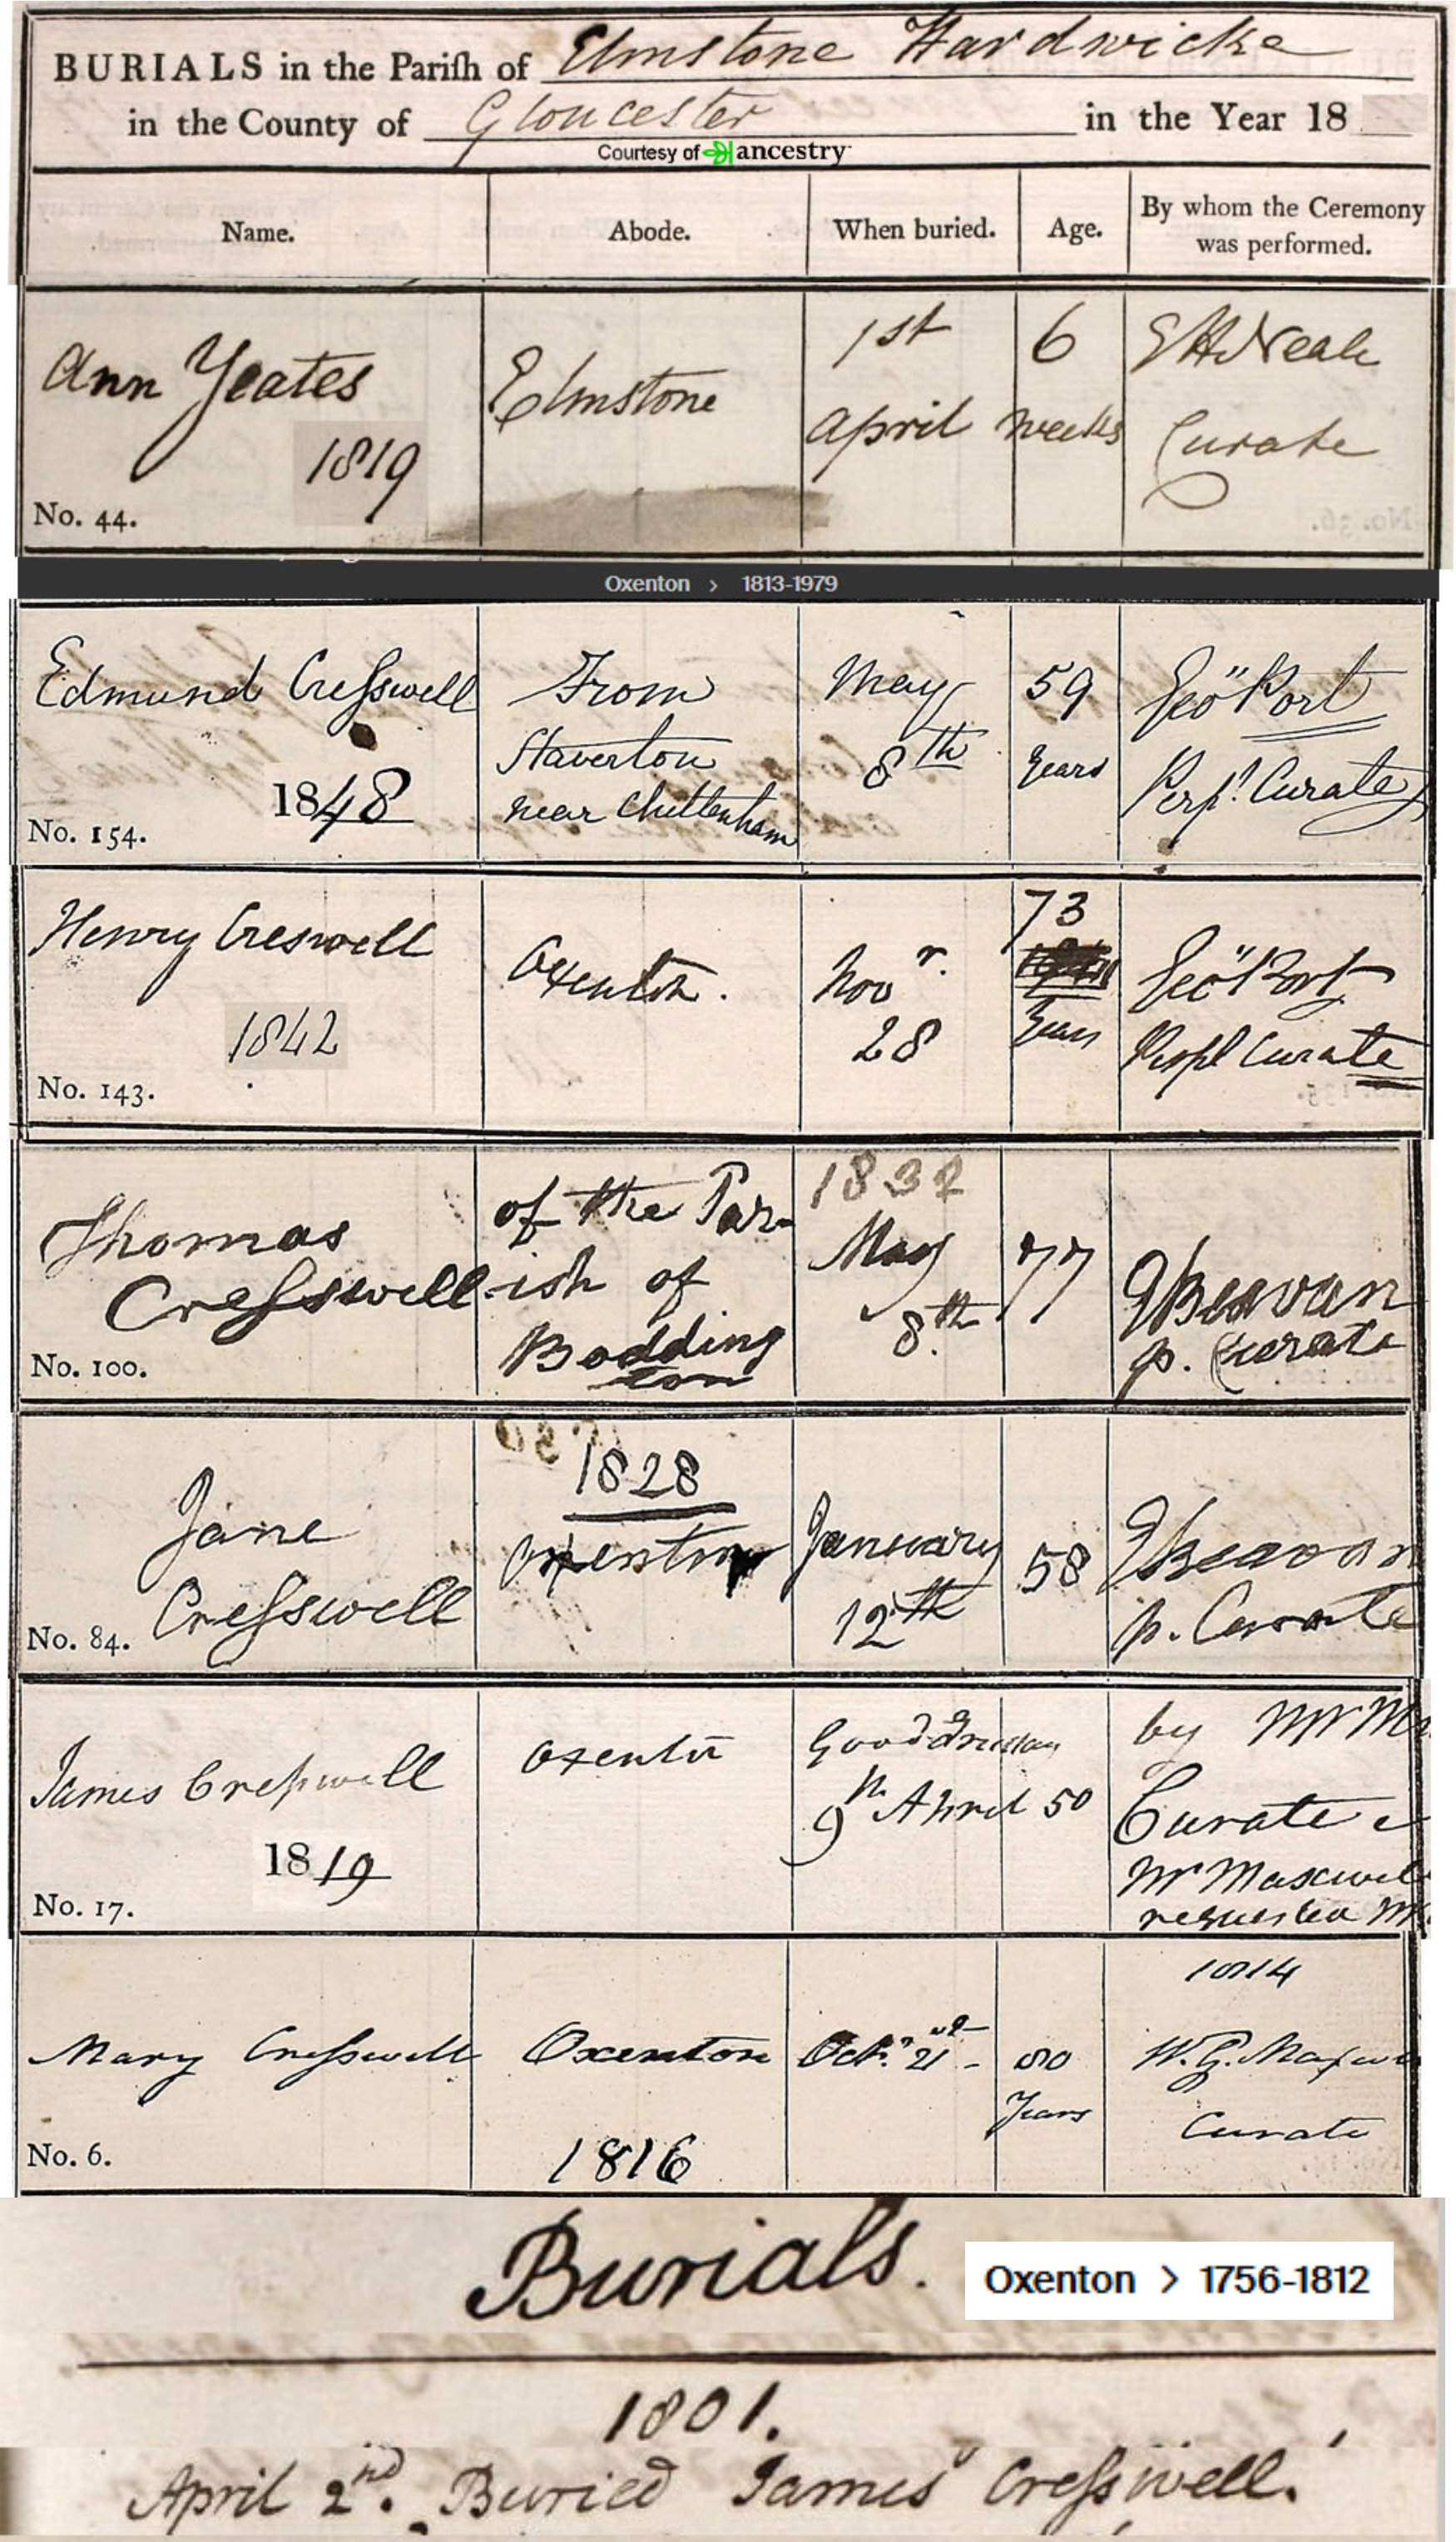 BURIALS in the Pariſh of Elmstone Hardwicke
in the County of Gloucester in the Year 18
Courtesy of ancestry
Name. Abode. When buried. Age. By whom the Ceremony was performed.
Ann Yeates
1819
No. 44.
Elmstone
1st
April
6
weeks
Curate
Oxenton > 1813-1979
Edmund Creſswell
1848
No. 154.
From
Staverton
near Cheltenham
May
8th
59
Years
Geo" Port
Perpl Curate
Henry Creswell
1842
No. 143.
Oxenton.
Novr.
28
73
Years
Geo" Port
Perpl Curate
Thomas
Creſswell
No. 100.
of the Par-
ish of
Bodding
ton
1832
May
8th
77
Beavan
p. Curate
Jane
Creſswell
No. 84.
1828
Oxenton
January
12th
58
Beavan
p. Curate
James Creſswell
1819
No. 17.
Oxenton
Good Friday
9th April
50
by Mr
Curate
Mr Maxwell
requested
Mary Creſswell
No. 6.
Oxenton
1816
Octr. 21
80
Years
1814
W. G. Maxwe
Curate
Burials.
Oxenton > 1756-1812
1801.
April 2nd. Buried James Creſswell.